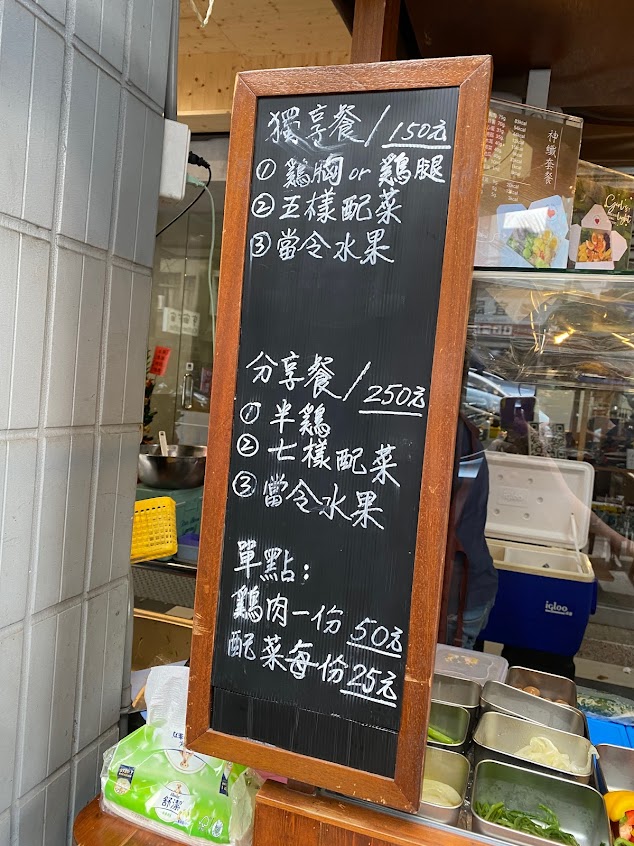 獨享餐/150元
① 鷄胸 or 鷄腿
② 五樣配菜
③ 當令水果
分享餐/250元
① 半鷄
② 七樣配菜
③ 當令水果
單點:
鷄肉一份 50元
配菜每份 25元
神纖套餐
igloo
舒潔